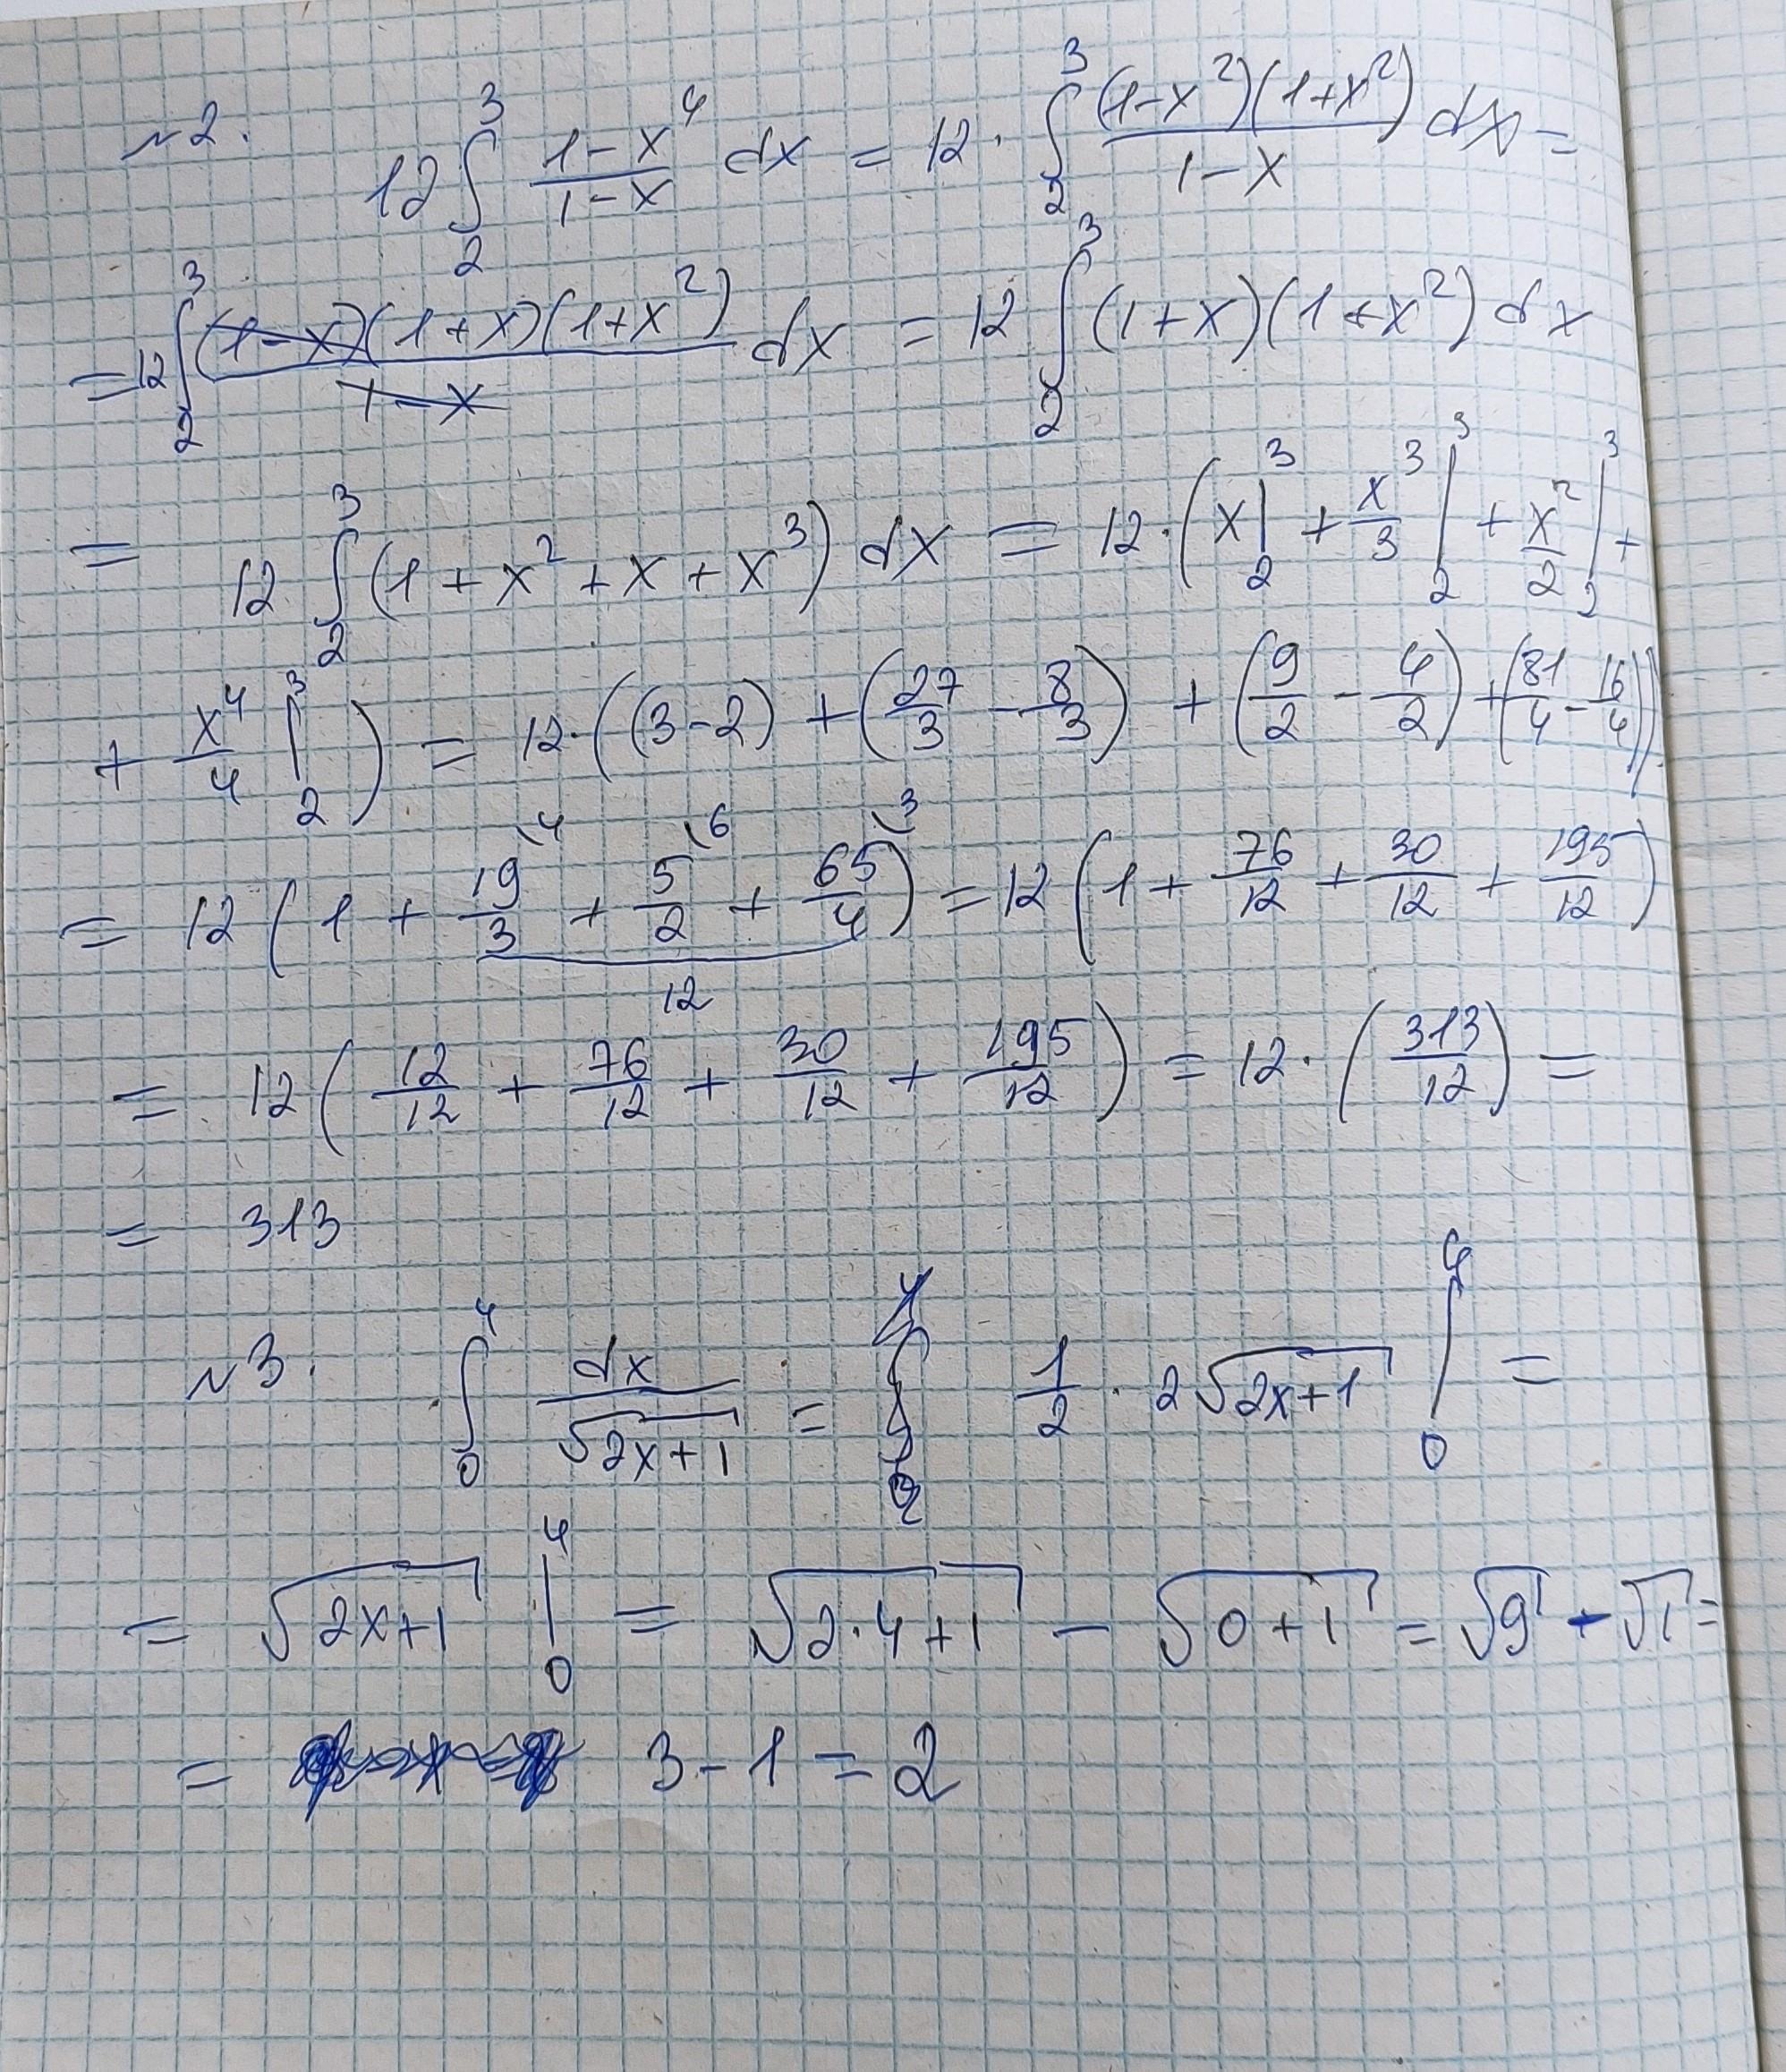 №2. 12 ∫₂³ (1-x⁴)/(1-x) dx = 12 · ∫₂³ (1-x²)(1+x²)/(1-x) dx =
= 12 ∫₂³ (1-x)(1+x)(1+x²)/(1-x) dx = 12 ∫₂³ (1+x)(1+x²) dx
= 12 ∫₂³ (1 + x² + x + x³) dx = 12 · (x|₂³ + x³/3 |₂³ + x²/2 |₂³ +
+ x⁴/4 |₂³ ) = 12 · ((3-2) + (27/3 - 8/3) + (9/2 - 4/2) + (81/4 - 16/4))
= 12 ( 1 + 19/3 ⁽⁴ + 5/2 ⁽⁶ + 65/4 ⁽³ ) = 12 ( 1 + 76/12 + 30/12 + 195/12 )
12
= 12 ( 12/12 + 76/12 + 30/12 + 195/12 ) = 12 · ( 313/12 ) =
= 313
№3. ∫₀⁴ dx/√(2x+1) = 1/2 · 2√(2x+1) |₀⁴ =
= √(2x+1) |₀⁴ = √(2·4+1) - √(0+1) = √9 - √1 =
= 3 - 1 = 2